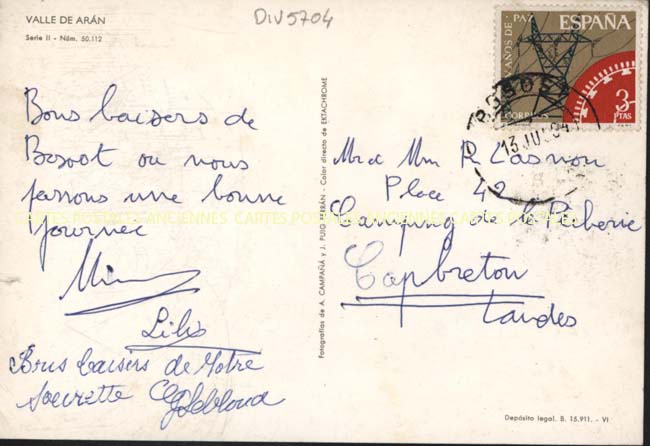 VALLE DE ARÁN
Serie II - Núm. 50.112
DIV5704
AÑOS DE PAZ
ESPAÑA
CORREOS
3
PTAS
13 JUL 64
Bons baisers de
Bosost ou nous
passons une bonne
Journee
Lilis
Bons baisers de Notre
soeurette
Fotografías de A. CAMPAÑÁ y J. PUIG FERRÁN - Color directo de EKTACHROME
Mr et Mm R Casnon
Place 42
Camping de la Pecherie
Capbreton
Landes
CARTES POSTALES ANCIENNES CARTES POSTALES ANCIENNES CARTES POSTALES
Depósito legal. B. 15.911. - VI